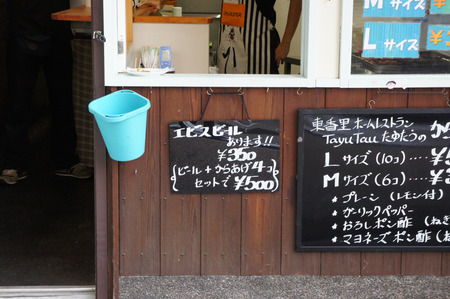 M サイズ
L サイズ
エビスビール
あります!!
¥350
(ビール + からあげ4コ
セットで ¥500)
東香里 ホームレストラン
TayuTau たゆたうの か
L サイズ (10コ) ....¥
M サイズ (6コ) ....¥
・プレーン (レモン付)
・ガーリックペッパー
・おろしポン酢 (ねぎ
・マヨネーズポン酢 (ね